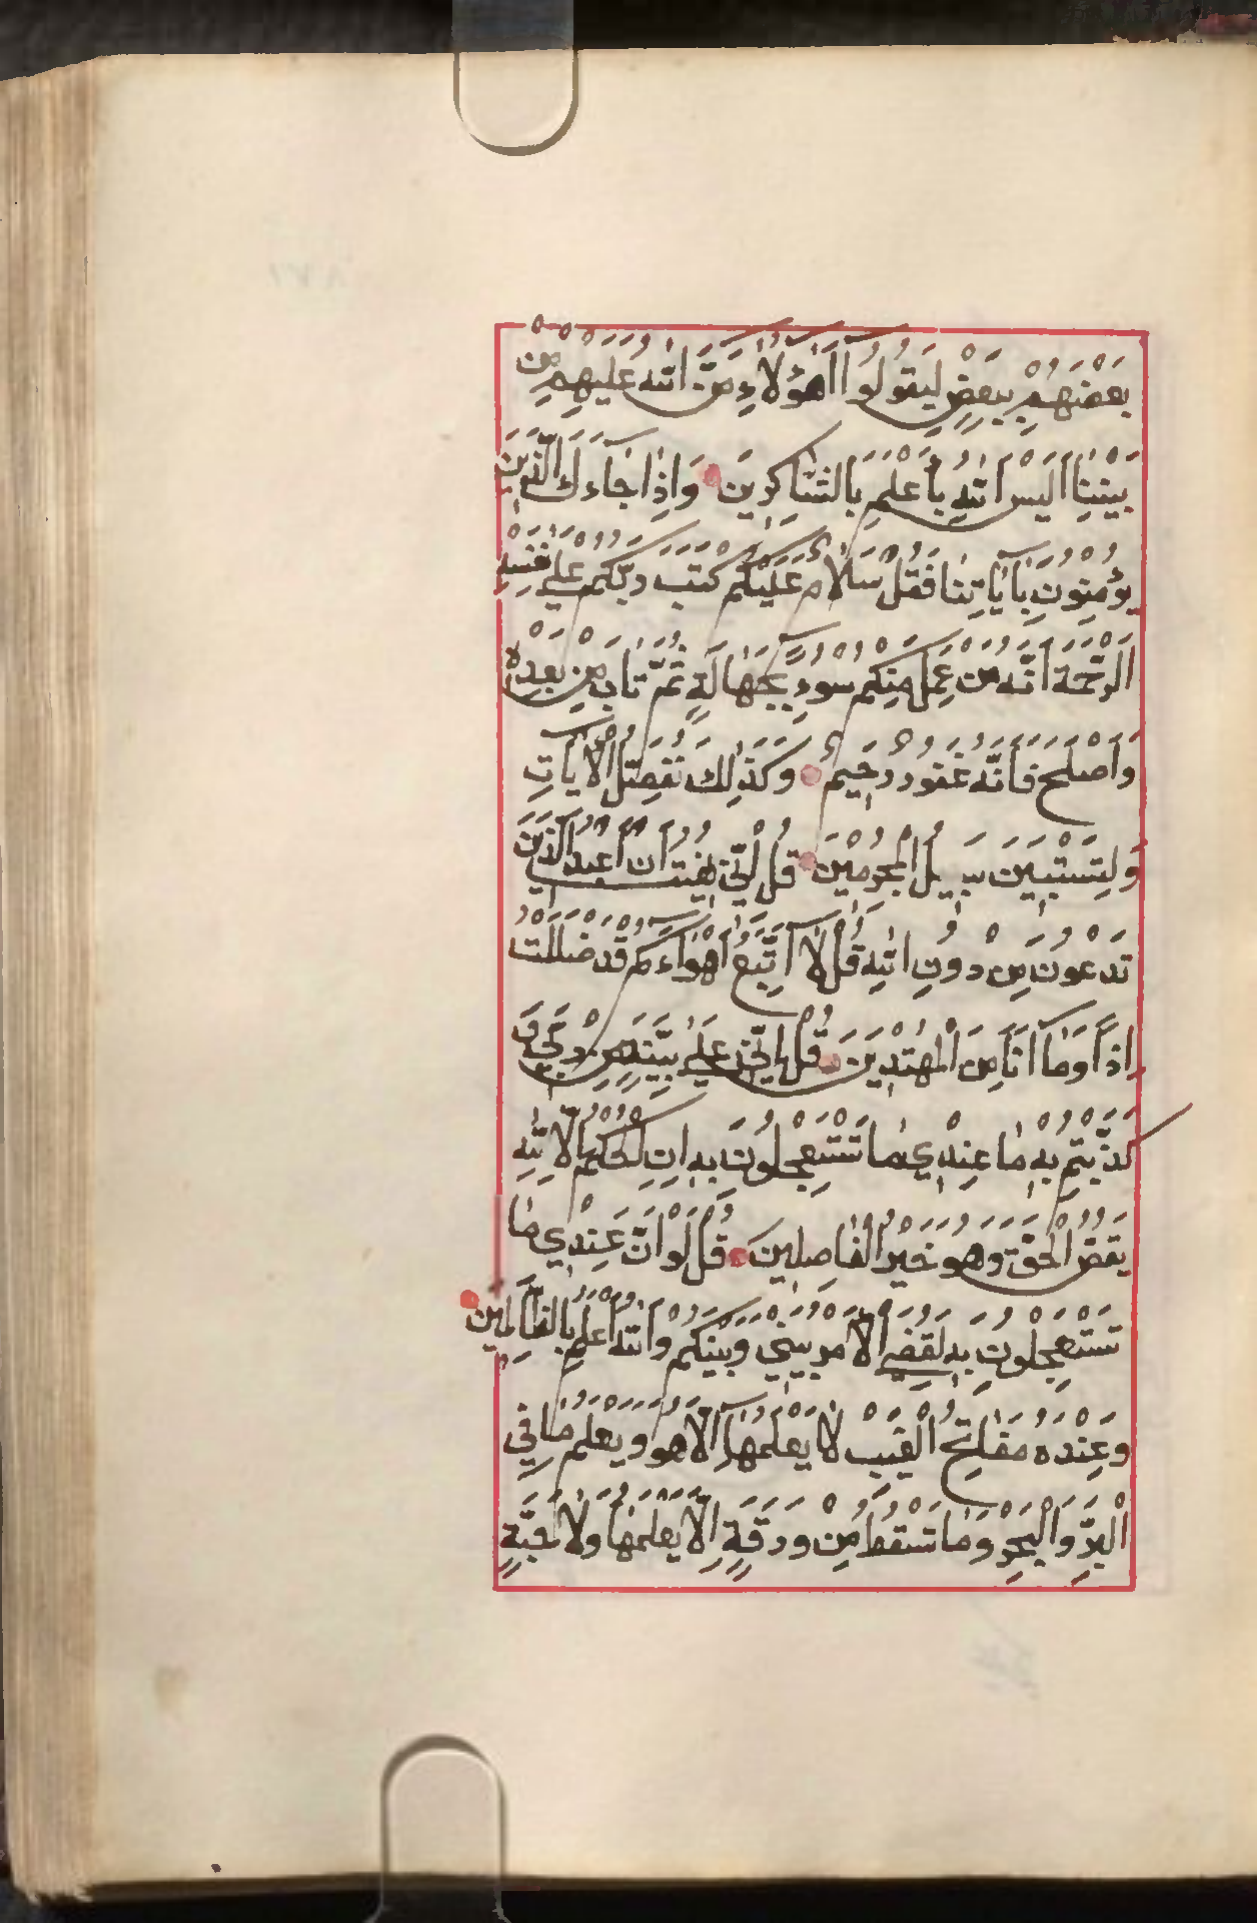 بَعْضَهُمْ بِبَعْضٍ لِيَقُولُوا أَهٰؤُلَاءِ مَنَّ اللّٰهُ عَلَيْهِمْ مِنْ
بَيْنِنَا أَلَيْسَ اللّٰهُ بِأَعْلَمَ بِالشَّاكِرِينَ وَإِذَا جَاءَكَ الَّذِينَ
يُؤْمِنُونَ بِآيَاتِنَا فَقُلْ سَلَامٌ عَلَيْكُمْ كَتَبَ رَبُّكُمْ عَلَى نَفْسِهِ
الرَّحْمَةَ أَنَّهُ مَنْ عَمِلَ مِنْكُمْ سُوءًا بِجَهَالَةٍ ثُمَّ تَابَ مِنْ بَعْدِهِ
وَأَصْلَحَ فَأَنَّهُ غَفُورٌ رَحِيمٌ وَكَذٰلِكَ نُفَصِّلُ الْآيَاتِ
وَلِتَسْتَبِينَ سَبِيلُ الْمُجْرِمِينَ قُلْ إِنِّي نُهِيتُ أَنْ أَعْبُدَ الَّذِينَ
تَدْعُونَ مِنْ دُونِ اللّٰهِ قُلْ لَا أَتَّبِعُ أَهْوَاءَكُمْ قَدْ ضَلَلْتُ
إِذًا وَمَا أَنَا مِنَ الْمُهْتَدِينَ قُلْ إِنِّي عَلَى بَيِّنَةٍ مِنْ رَبِّي وَ
كَذَّبْتُمْ بِهِ مَا عِنْدِي مَا تَسْتَعْجِلُونَ بِهِ إِنِ الْحُكْمُ إِلَّا لِلّٰهِ
يَقُصُّ الْحَقَّ وَهُوَ خَيْرُ الْفَاصِلِينَ قُلْ لَوْ أَنَّ عِنْدِي مَا
تَسْتَعْجِلُونَ بِهِ لَقُضِيَ الْأَمْرُ بَيْنِي وَبَيْنَكُمْ وَاللّٰهُ أَعْلَمُ بِالظَّالِمِينَ
وَعِنْدَهُ مَفَاتِحُ الْغَيْبِ لَا يَعْلَمُهَا إِلَّا هُوَ وَيَعْلَمُ مَا فِي
الْبَرِّ وَالْبَحْرِ وَمَا تَسْقُطُ مِنْ وَرَقَةٍ إِلَّا يَعْلَمُهَا وَلَا حَبَّةٍ